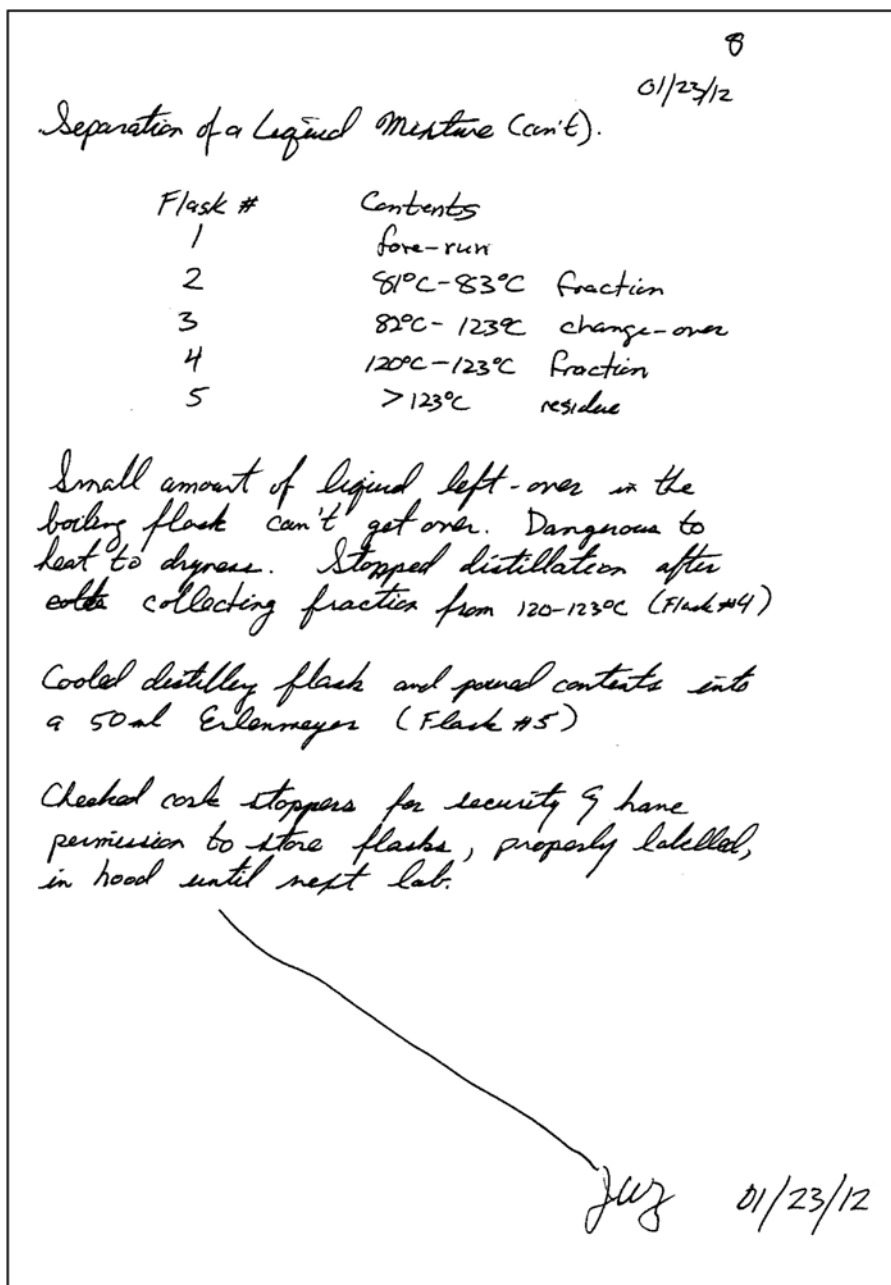 8
01/23/12
Separation of a Liquid Mixture (con't).
Flask # Contents
1 fore-run
2 81°C-83°C fraction
3 82°C-123°C change-over
4 120°C-123°C fraction
5 >123°C residue
Small amount of liquid left-over in the
boiling flask can't get over. Dangerous to
heat to dryness. Stopped distillation after
collecting fraction from 120-123°C (Flask #4)
Cooled distilling flask and poured contents into
a 50ml Erlenmeyer (Flask #5)
Checked cork stoppers for security & have
permission to store flasks, properly labelled,
in hood until next lab.
01/23/12